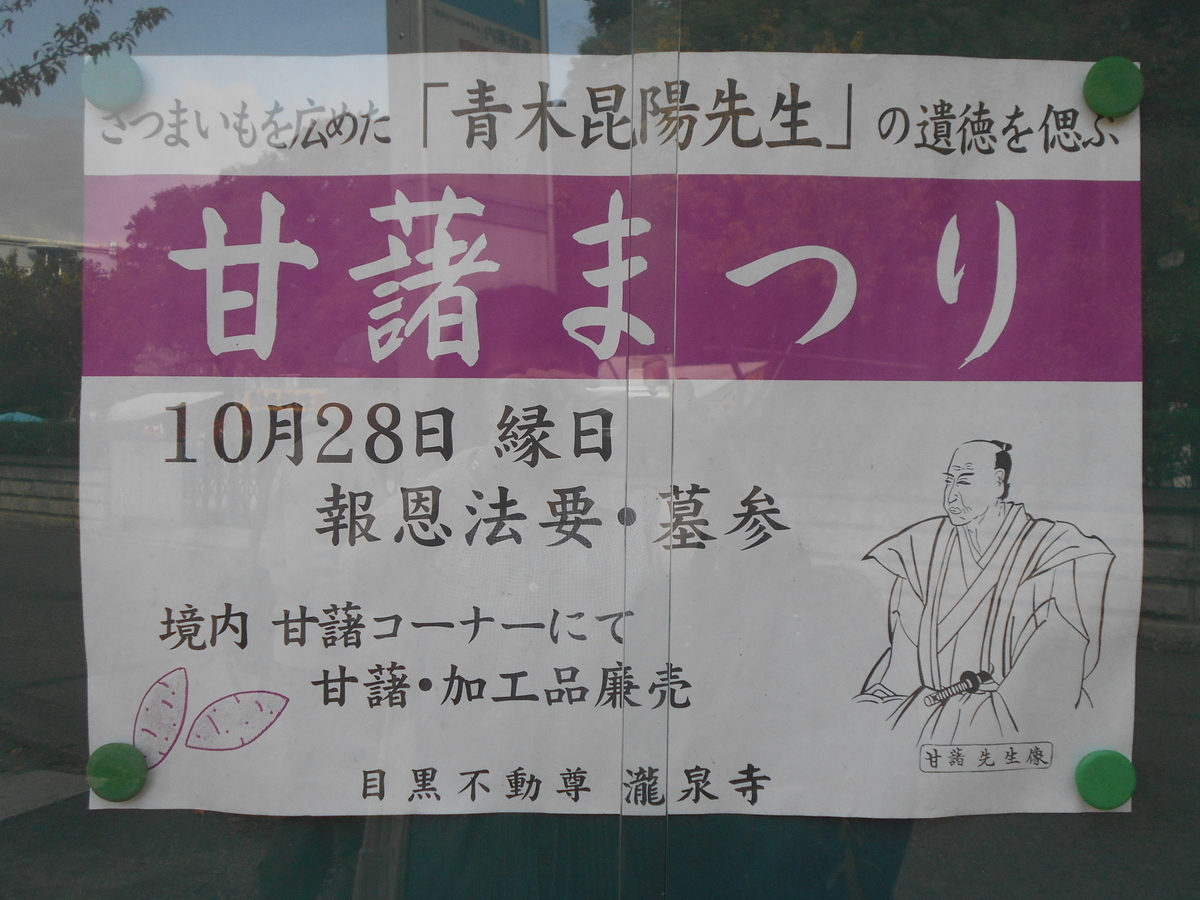 さつまいもを広めた「青木昆陽先生」の遺徳を偲ぶ
甘藷まつり
10月28日 縁日
報恩法要・墓参
境内 甘藷コーナーにて
甘藷・加工品廉売
甘藷先生像
目黒不動尊 瀧泉寺